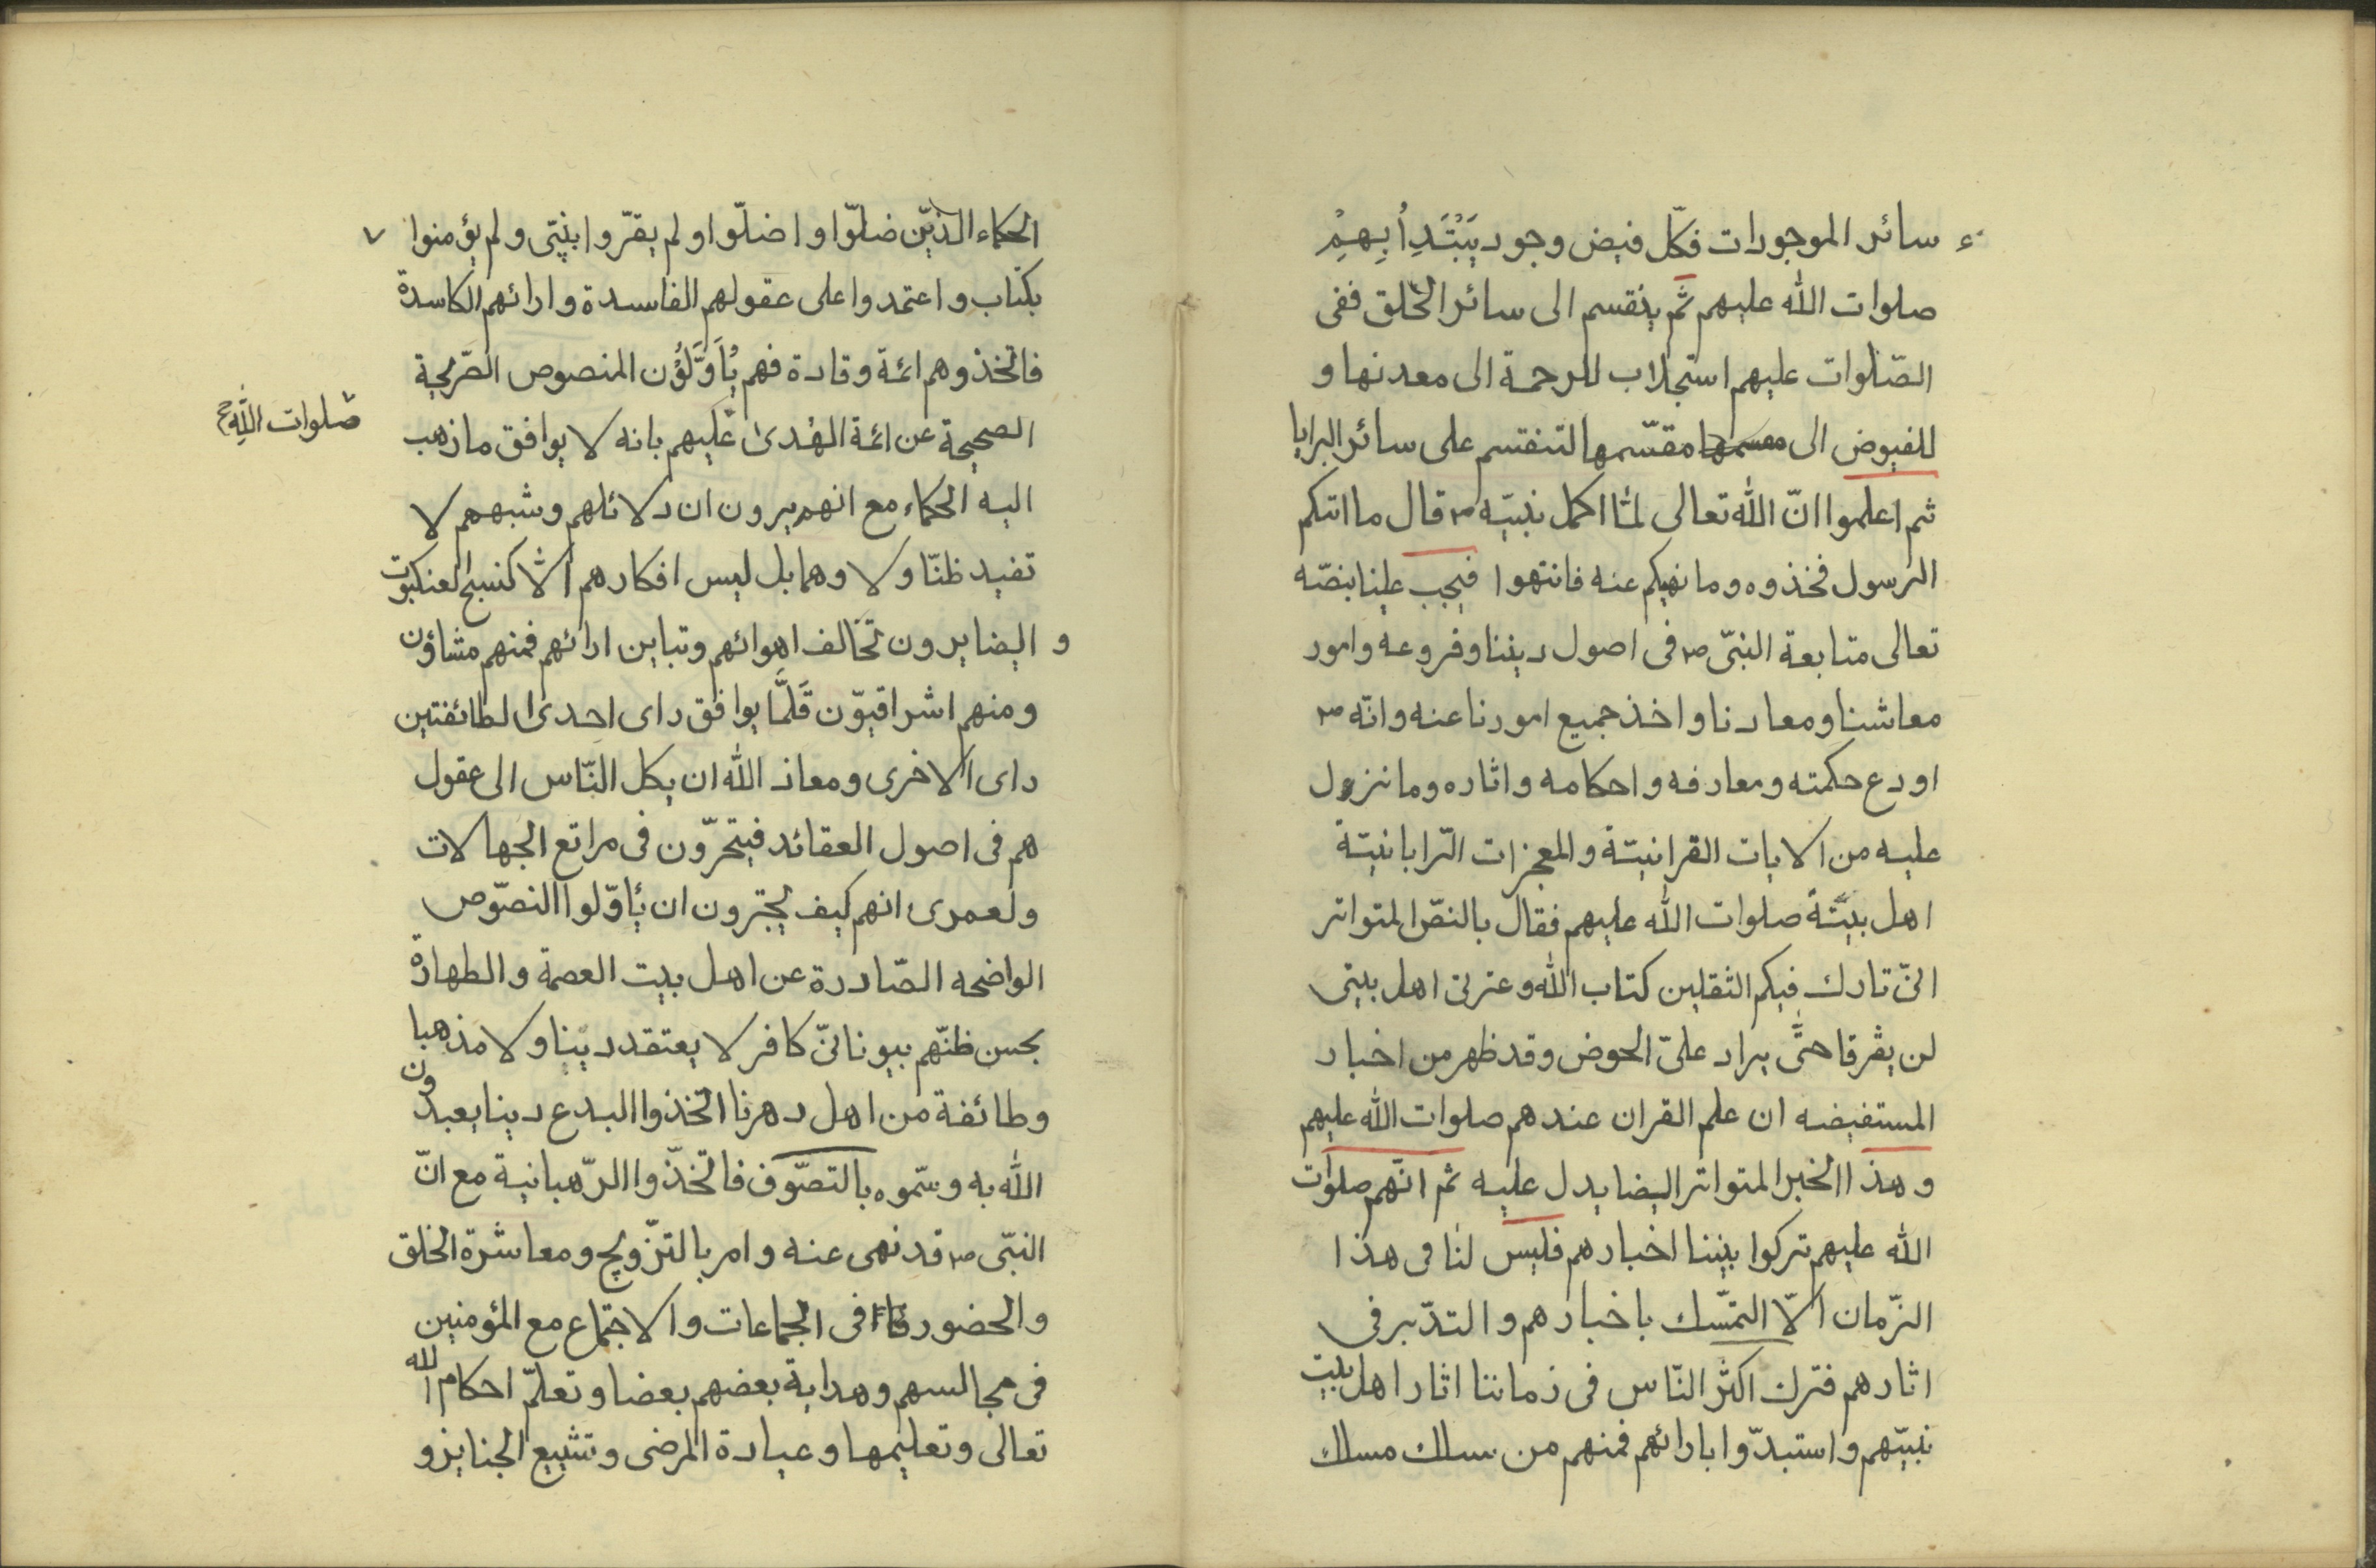 سائر الموجودات فكلّ فيض وجود يَبْتَدِأُ بِهِمْ
صلوات الله عليهم ثمّ ينقسم الى سائر الخلق ففى
الصّلوات عليهم استجلاب للرحمة الى معدنها و
للفيوض الى مقسّمها لتنقسم على سائر البرايا
ثم اعلموا انّ الله تعالى لمّا اكمل نبيّه ص قال ما اتيكم
الرسول فخذوه وما نهيكم عنه فانتهوا فيجب علينا بنصّه
تعالى متابعة النبىّ ص فى اصول ديننا وفروعه وامور
معاشنا ومعادنا واخذ جميع امورنا عنه وانّه ص
اودع حكمته ومعارفه واحكامه واثاره وما نزول
عليه من الايات القرانيّة والمعجزات الرّابانيّة
اهل بيته صلوات الله عليهم فقال بالنصّ المتواتر
انّى تارك فيكم الثقلين كتاب الله وعترتى اهل بيتى
لن يفرقا حتَّى يراد علىّ الحوض وقد ظهر من اخبار
المستفيضه ان علم القران عندهم صلوات الله عليهم
وهذا الخبر المتواتر ايضا يدل عليه ثم انّهم صلوات
الله عليهم تركوا بيننا اخبارهم فليس لنا فى هذا
الزّمان الّا التمسّك باخبارهم والتدّبر فى
اثارهم فترك اكثر النّاس فى زماننا اثار اهل بيت
نبيّهم واستبدّوا بارائهم فمنهم من سلك مسلك
الحكماء الذيّن ضلّوا واضلّوا ولم يقرّوا بنبىّ ولم يؤمنوا ٧
بكتاب واعتمدوا على عقولهم الفاسدة وارائهم الكاسدة
فاتخذوهم ائمة وقادة فهم يُأَوَّلُؤُن المنصوص الصّريحة
الصحيحة عن ائمة الهُدىٰ عليهم بانه لا يوافق ما ذهب
صلوات اللهِ
اليه الحكماء مع انهم يرون ان دلائلهم وشبههم لا
تفيد ظنّا ولا وهما بل ليس افكارهم الّا كنسج العنكبوت
و ايضا يرون تخالف اهوائهم وتباين ارائهم فمنهم مشاؤن
ومنهم اشراقيوّن قَلَّمَا يوافق راى احدى الطائفتين
راى الاخرى ومعاذ الله ان يكل النّاس الى عقول
هم فى اصول العقائد فيتحرّون فى مراتع الجهالات
ولعمرى انهم كيف يجترون ان يأوّلوا النصّوص
الواضحه الصّادرة عن اهل بيت العصمة والطهارة
بحسن ظنّهم بيونانىّ كافر لا يعتقد دينا ولا مذهبا
وطائفة من اهل دهرنا اتّخذوا البدع دينا يعبدون
الله به وسّموه بالتصّوف فاتّخذّوا الرّهبانية مع انّ
النبّى ص قد نهى عنه وامر بالتزّويج ومعاشرة الخلق
والحضور فى الجماعات والاجتماع مع المؤمنين
فى مجالسهم وهداية بعضهم بعضا وتعلّم احكام الله
تعالى وتعليمها وعيادة المرضى وتشييع الجنايز و